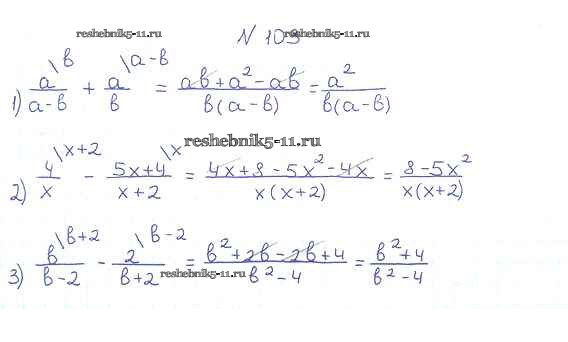 reshebnik5-11.ru N 103 reshebnik5-11.ru
1) a/(a-b) \b + a/b \a-b = (ab + a² - ab)/(b(a-b)) = a²/(b(a-b))
reshebnik5-11.ru
2) 4/x \x+2 - (5x+4)/(x+2) \x = (4x+8-5x²-4x)/(x(x+2)) = (8-5x²)/(x(x+2))
3) b/(b-2) \b+2 - 2/(b+2) \b-2 = (b²+2b-2b+4)/(b²-4) = (b²+4)/(b²-4)
reshebnik5-11.ru